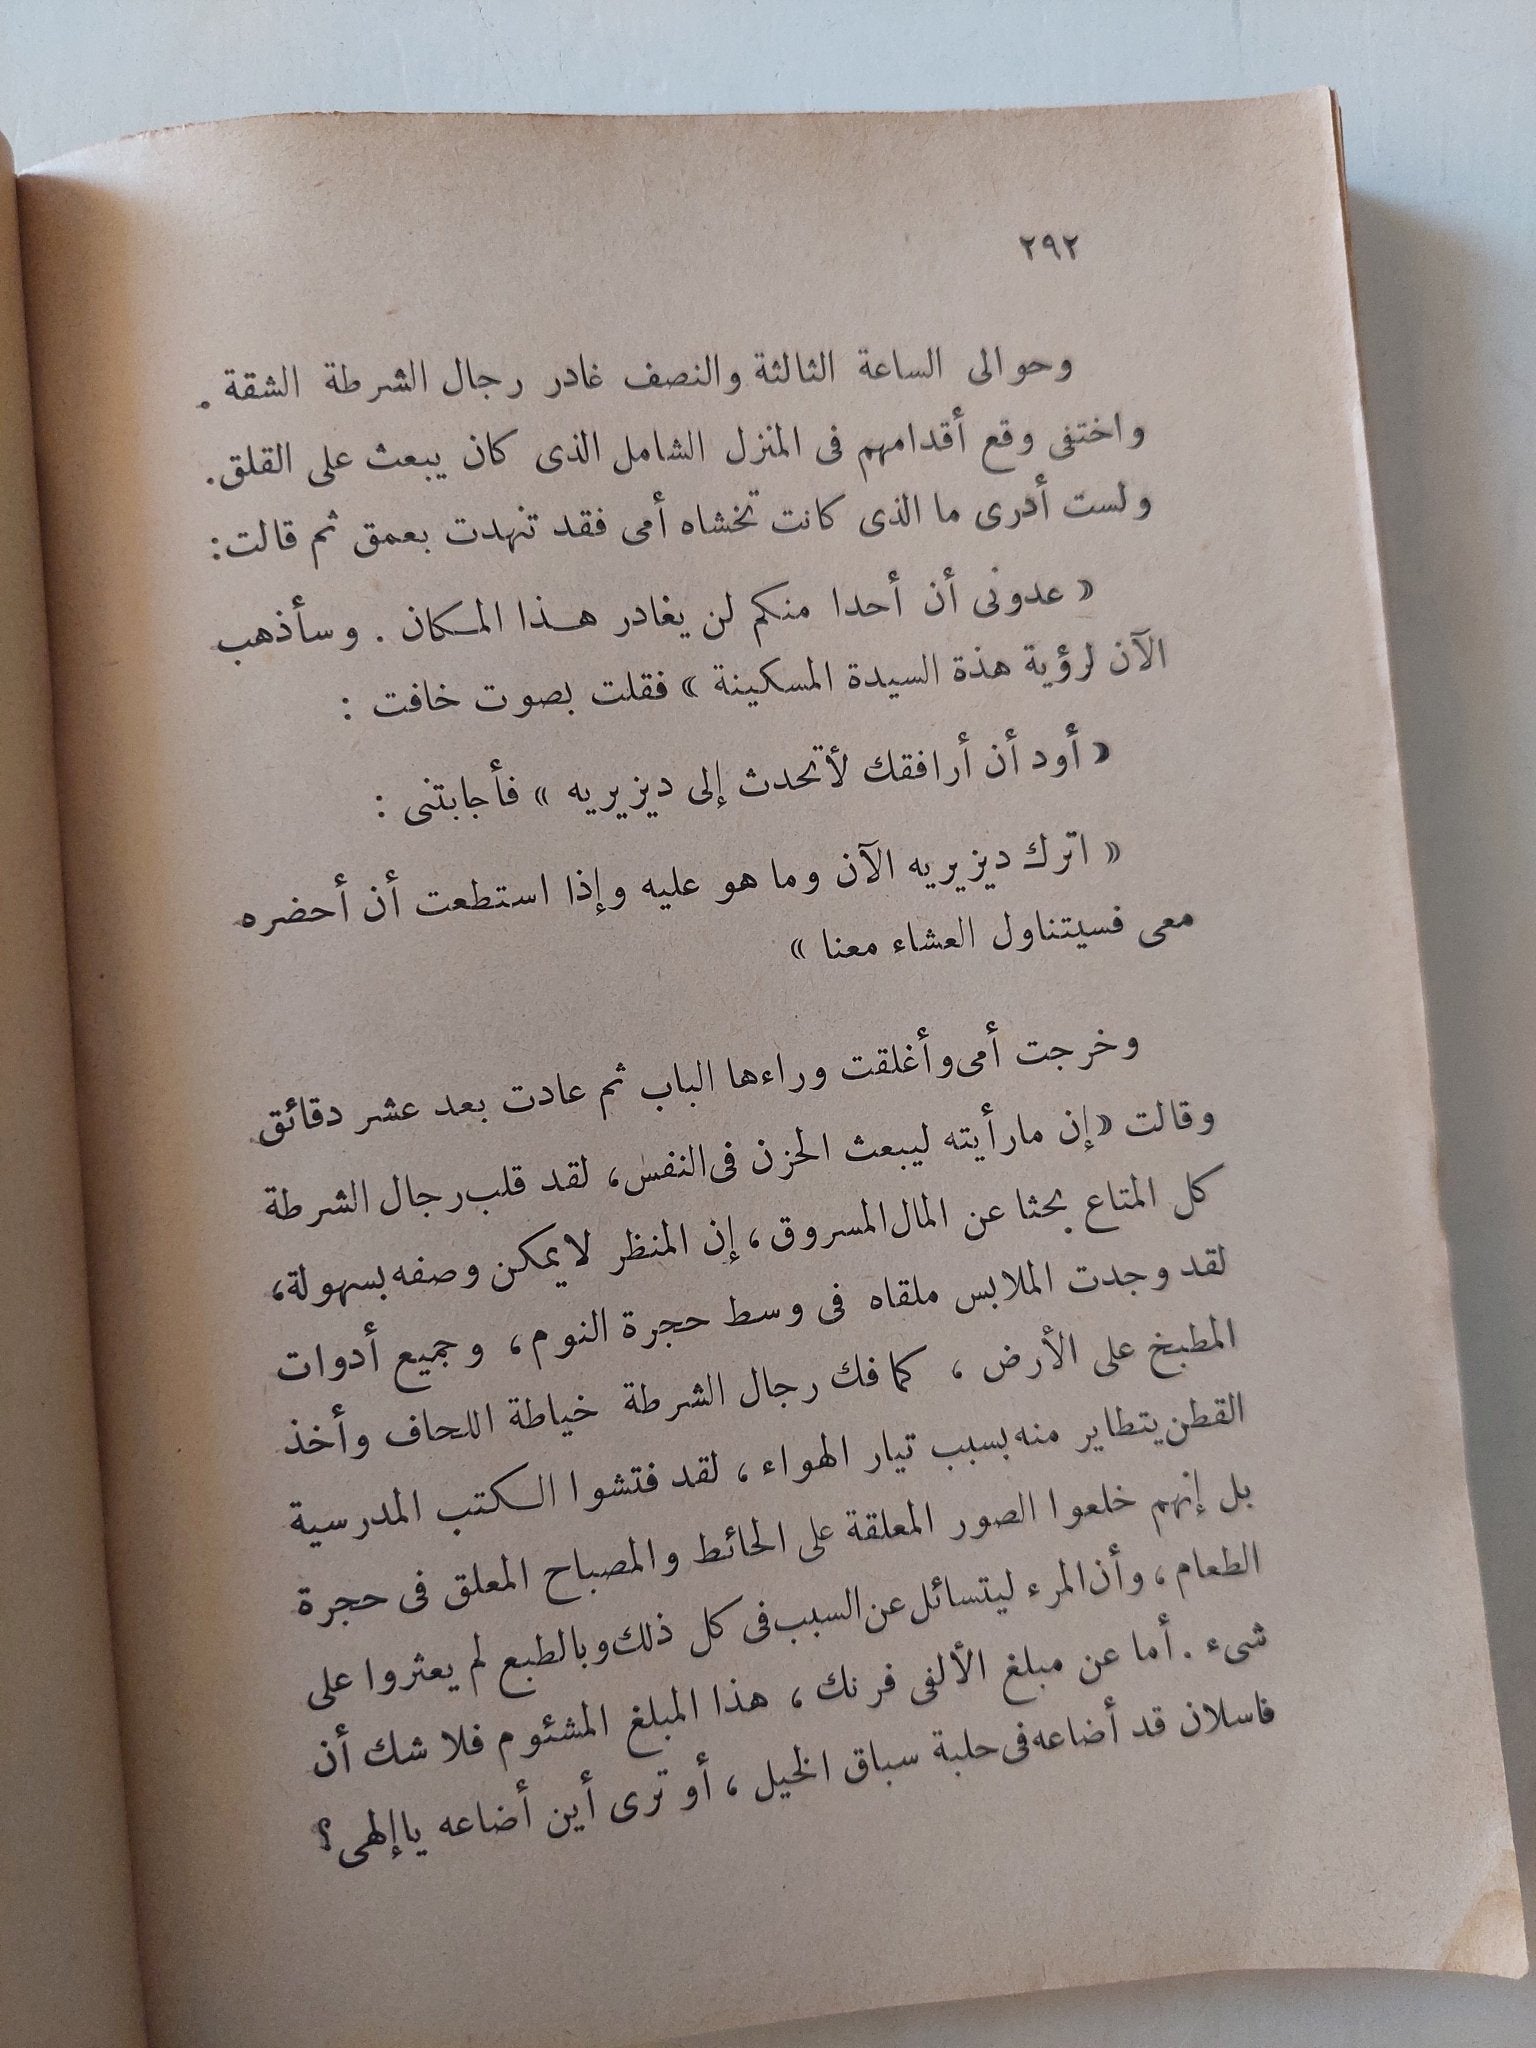 ٢٩٢
وحوالى الساعة الثالثة والنصف غادر رجال الشرطة الشقة .
واختفى وقع أقدامهم فى المنزل الشامل الذى كان يبعث على القلق.
ولست أدرى ما الذى كانت تخشاه أمى فقد تنهدت بعمق ثم قالت:
« عدونى أن أحدا منكم لن يغادر هـذا المـكان . وسأذهب
الآن لرؤية هذة السيدة المسكينة » فقلت بصوت خافت :
« أود أن أرافقك لأتحدث إلى ديزيريه » فأجابتنى :
« اترك ديزيريه الآن وما هو عليه وإذا استطعت أن أحضره
معى فسيتناول العشاء معنا »
وخرجت أمى وأغلقت وراءها الباب ثم عادت بعد عشر دقائق
وقالت «إن مارأيته ليبعث الحزن فى النفس، لقد قلب رجال الشرطة
كل المتاع بحثا عن المال المسروق ، إن المنظر لايمكن وصفه بسهولة،
لقد وجدت الملابس ملقاه فى وسط حجرة النوم ، وجميع أدوات
المطبخ على الأرض ، كما فك رجال الشرطة خياطة اللحاف وأخذ
القطن يتطاير منه بسبب تيار الهواء ، لقد فتشوا الـكتب المدرسية
بل إنهم خلعوا الصور المعلقة على الحائط والمصباح المعلق فى حجرة
الطعام ، وأن المرء ليتسائل عن السبب فى كل ذلك وبالطبع لم يعثروا على
شىء . أما عن مبلغ الألفى فرنك ، هذا المبلغ المشئوم فلا شك أن
فاسلان قد أضاعه فى حلبة سباق الخيل ، أو ترى أين أضاعه ياإلهى؟